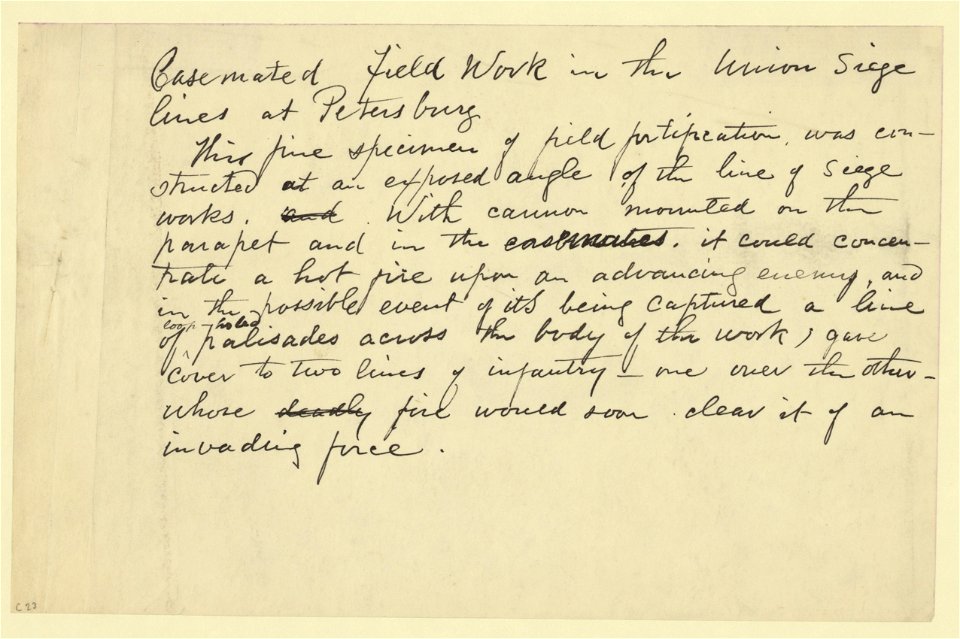 Casemated Field Work in the Union Siege
lines at Petersburg
This fine specimen of field fortification, was con-
structed at an exposed angle of the line of Siege
works. and With cannon mounted on the
parapet and in the casemates. it could concen-
trate a hot fire upon an advancing enemy, and
in the possible event of it's being captured a line
loop holed
of palisades across the body of the work, gave
cover to two lines of infantry — one over the other —
whose deadly fire would soon clear it of an
invading force.
C 23